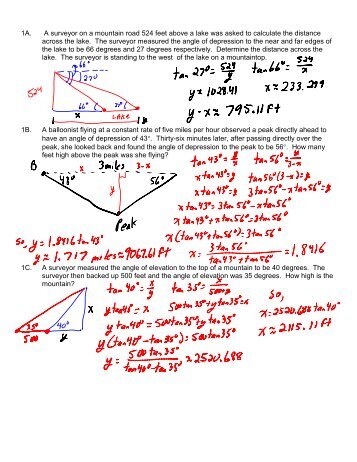 1A. A surveyor on a mountain road 524 feet above a lake was asked to calculate the distance
across the lake. The surveyor measured the angle of depression to the near and far edges of
the lake to be 66 degrees and 27 degrees respectively. Determine the distance across the
lake. The surveyor is standing to the west of the lake on a mountaintop.
66°
27°
524
66° 27°
x LAKE
y
tan 27° = 524/y tan 66° = 524/x
y ≈ 1028.41 x ≈ 233.299
y - x ≈ 795.11 ft
1B. A balloonist flying at a constant rate of five miles per hour observed a peak directly ahead to
have an angle of depression of 43°. Thirty-six minutes later, after passing directly over the
peak, she looked back and found the angle of depression to the peak to be 56°. How many
feet high above the peak was she flying?
B x 3miles 3-x
43° y 56°
Peak
tan 43° = y/x tan 56° = y/3-x
x tan 43° = y tan 56° (3-x) = y
x tan 43° = 3tan 56° - x tan 56°
x tan 43° + x tan 56° = 3tan 56°
x (tan 43° + tan 56°) = 3tan 56°
x = 3tan 56°/tan 43° + tan 56° ≈ 1.8416
So, y = 1.8416 tan 43°
y ≈ 1.717 miles ≈ 9067.61 ft
1C. A surveyor measured the angle of elevation to the top of a mountain to be 40 degrees. The
surveyor then backed up 500 feet and the angle of elevation was 35 degrees. How high is the
mountain?
35° 40° x
500 y
tan 40° = x/y tan 35° = x/500+y
y tan 40° = x 500 tan 35° + y tan 35° = x
y tan 40° = 500 tan 35° + y tan 35°
y (tan 40° - tan 35°) = 500 tan 35°
y = 500 tan 35°/tan 40° - tan 35° ≈ 2520.688
So,
x = 2520.688 tan 40°
x ≈ 2115.11 ft